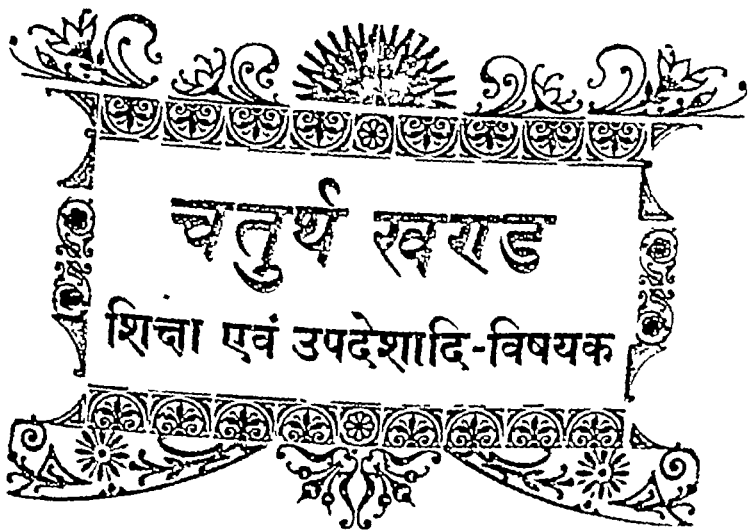 चतुर्थ खण्ड
शिक्षा एवं उपदेशादि-विषयक